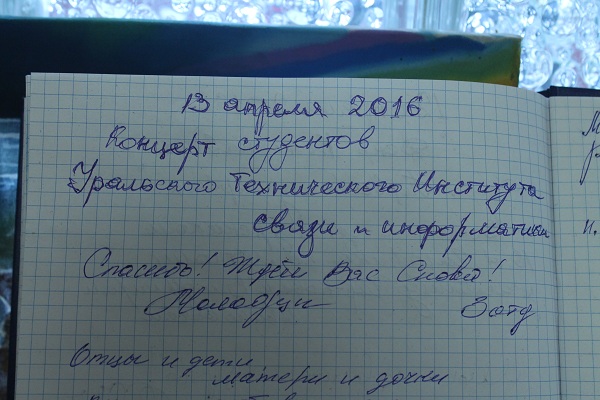 13 апреля 2016
Концерт студентов
Уральского Технического Института
связи и информатики
Спасибо! Ждём Вас Снова!
Молодцы
Отцы и дети
матери и дочки